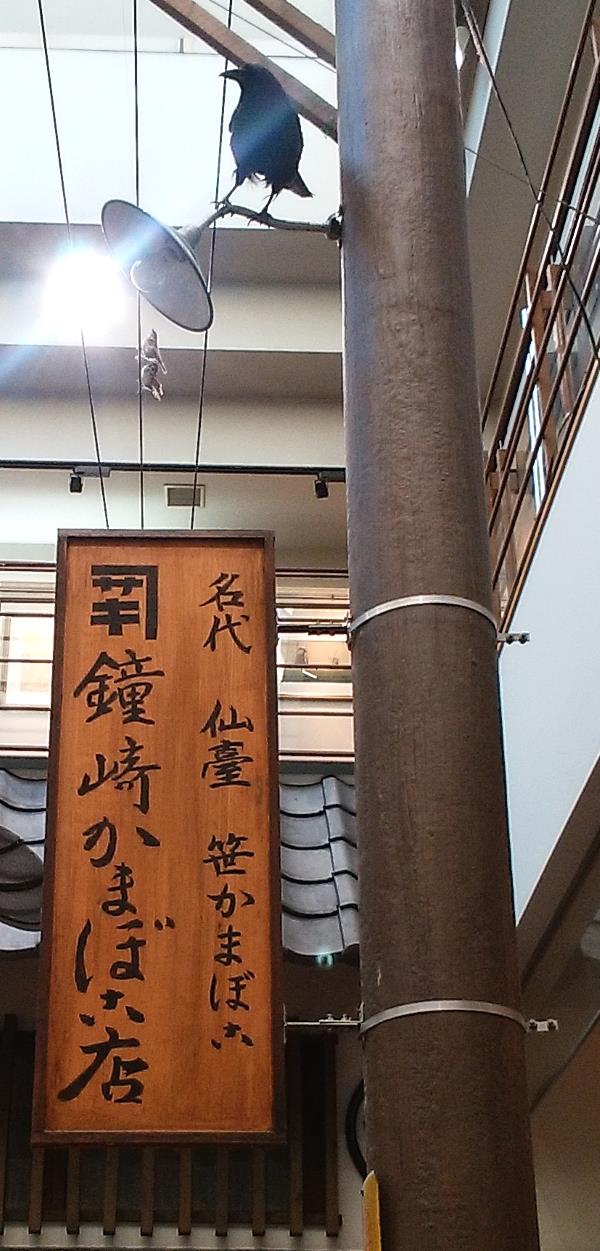 名代 仙臺 笹かまぼこ
鐘崎かまぼこ店